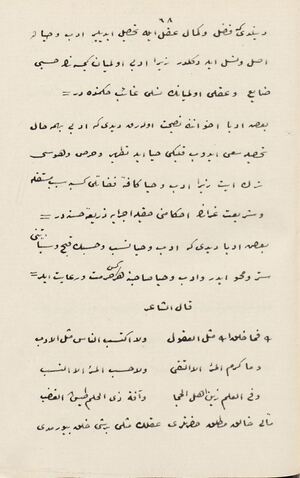 ٦٨
دیندی که فضل و کمال عقل ایله تحصیل ایدیلیر ادب و حیا ایله
اصل و نسل ایله دکلدر زیرا ادبی اولمیان کمسه نك حسبی
ضایع و عقلی اولمیانك نسلی غائب حکمنده در =
بعض ادبا اخواننه نصیحت اولەرق دیدی که ادبی بهر حال
تحصیله سعی ایدوب قلبکی حیا ایله تطهیر و حرص و هوسی
ترك ایت زیرا ادب و حیا کافهٔ فضائلی کسبه سبب مستقلدر
و شریعت غرانك احکامنی اجرایه ذریعهٔ حسنه در =
بعض ادبا دیدی که ادب و حیا نسب و حسبك قبح و سیئاتنی
ستر و محو ایدر و ادب و حیا صاحبنه هرکس حرمت و رعایت ایدر =
قال الشاعر
فما خلق الله مثل العقول ولا اکتسب الناس مثل الادب
وما کرم المرء الا التقی ولا حسب المرء الا النسب
وفی العلم زین لاهل الحجا وآفة ذی الحلم طیش الغضب
خالق مطلق حضرتلری عقلك مثلی برشی خلق بیورمدی